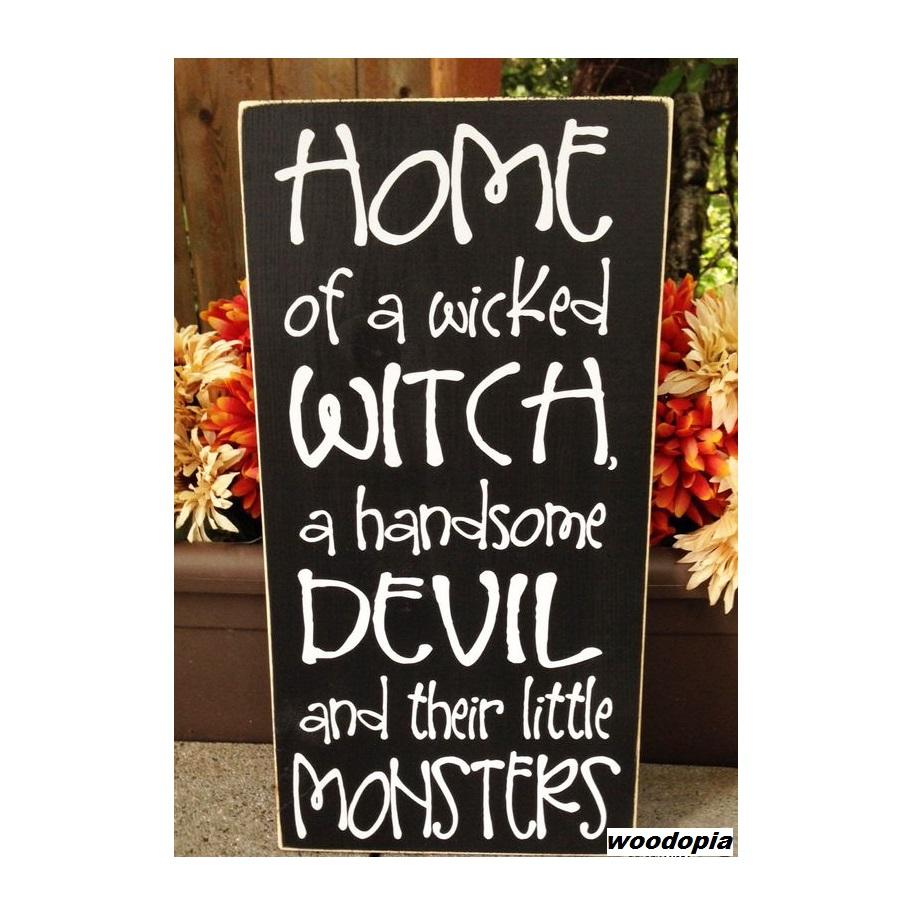 HOME
of a wicked
WITCH,
a handsome
DEVIL
and their little
MONSTERS
woodopia